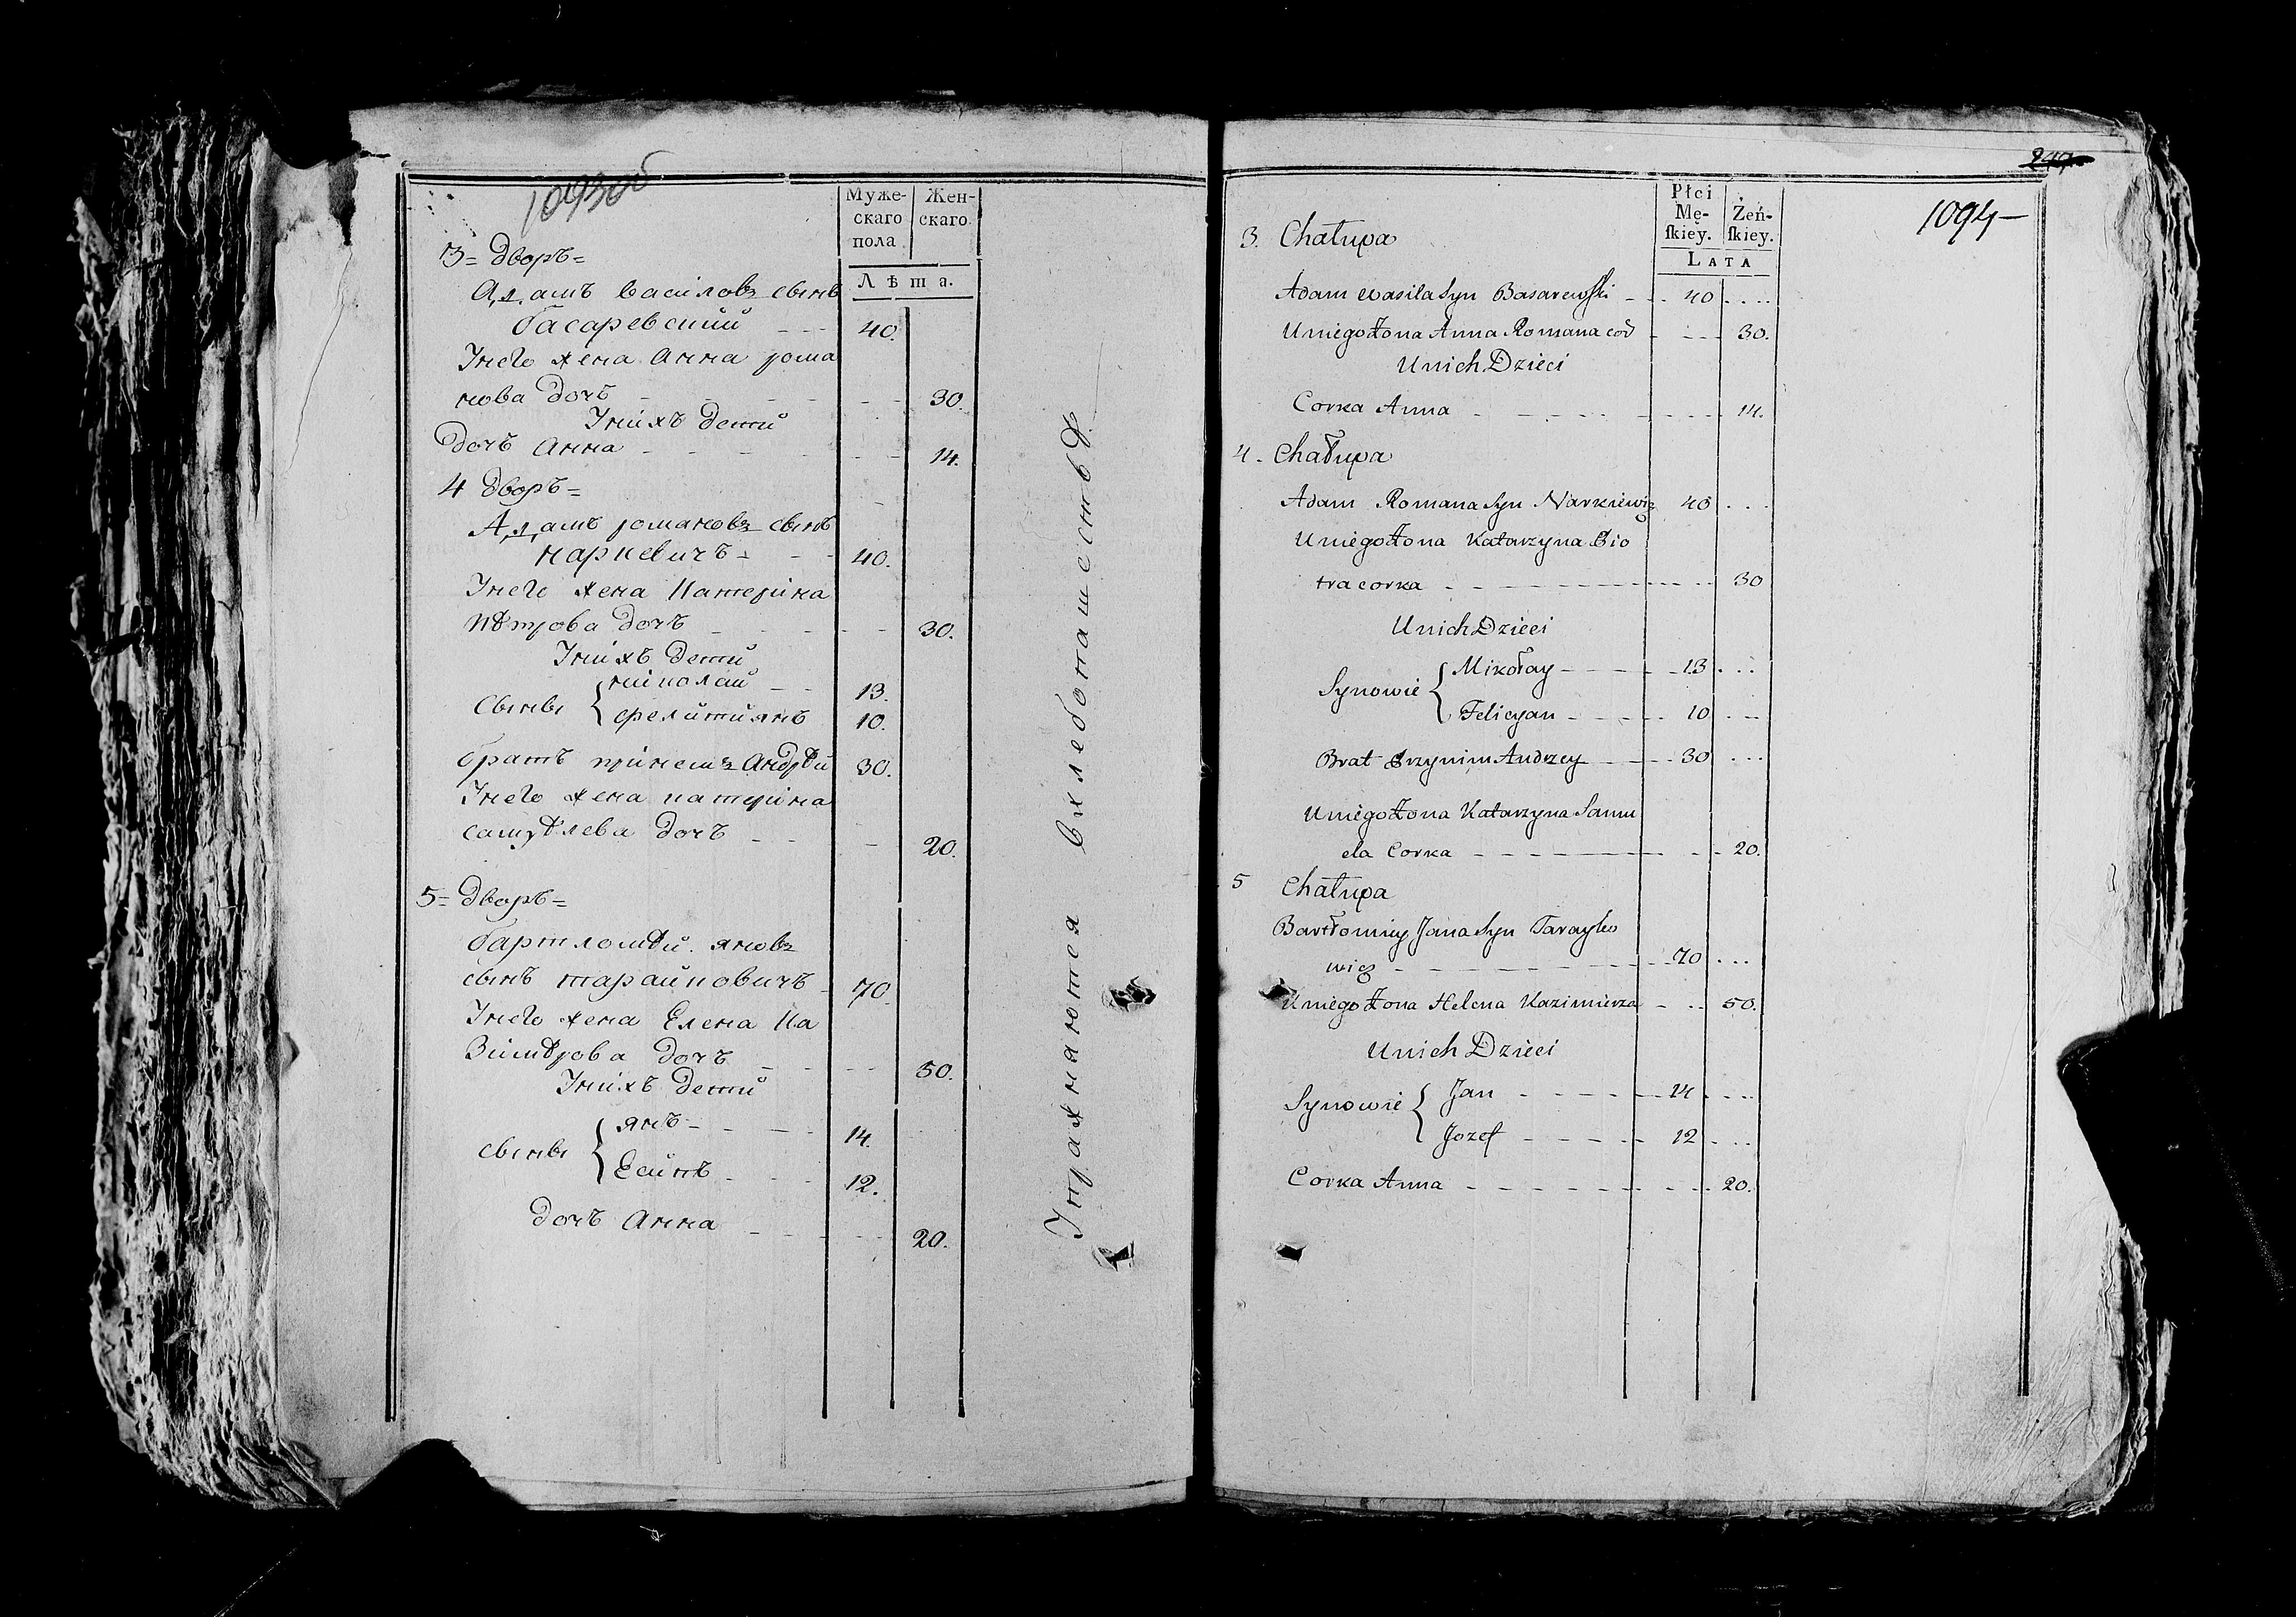 1093об
Муже-
скаго
пола
Жен-
скаго.
Лѣта.
3 = Дворъ =
Адамъ василовъ сынъ
басаревский 40.
Унего жена Анна рома
нова дочъ 30.
Унихъ дети
Дочъ Анна 14.
4 дворъ =
Адамъ романовъ сынъ
наркевичъ 40.
Унего жена Катерина
Пѣтрова дочъ 30.
Унихъ дети
Сыны { николай 13.
фелитиянъ 10.
братъ принемъ Андрѣй 30.
Унего жена катерина
самуѣлева дочъ 20.
5 = Дворъ =
бартломѣй яновъ
сынъ тарайковичъ 70.
Унего жена Елена Ка
зимѣрова дочъ 50.
Унихъ дети
сыны { янъ 14.
Есипъ 12.
дочъ Анна 20.
Упражняются вхлебопашествѣ
247
1094
Płci
Mę-
ſkiey.
Żeń-
ſkiey.
LATA
3. Chałupa
Adam wasila Syn Basarewſki 40
Uniego Żona Anna Romana cod 30.
Unich Dzieci
Corka Anna 14.
4. Chałupa
Adam Romana Syn Narkiewicz 40
Uniego Żona Katarzyna Pio
tra corka 30
Unich Dzieci
Synowie { Mikołay 13
Felicyan 10
Brat Przynim Andrzey 30
Uniego Żona Katarzyna Samu
ela Corka 20.
5 Chałupa
Bartłomiey Jana Syn Tarayko
wicz 70
Uniego Żona Helena Kazimierza 50.
Unich Dzieci
Synowie { Jan 14
Jozef 12
Corka Anna 20.